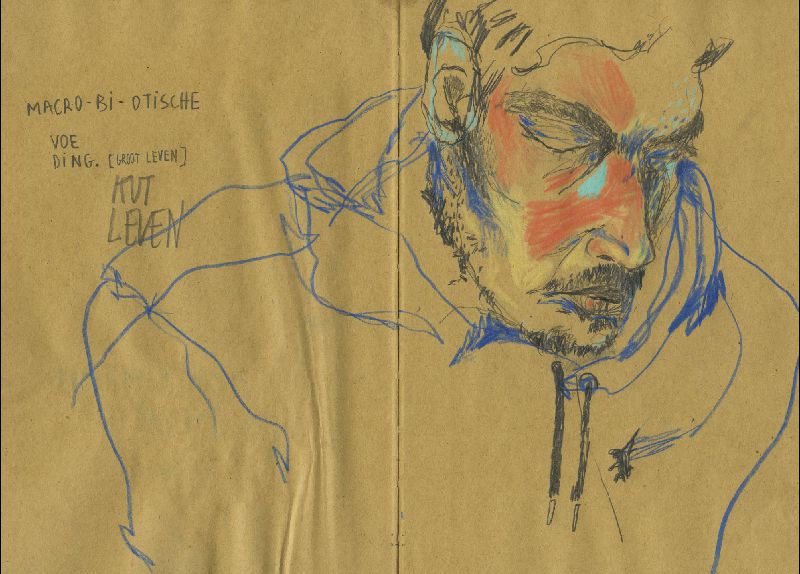 MACRO-BI-OTISCHE
VOE
DING. [GROOT LEVEN]
KUT
LEVEN